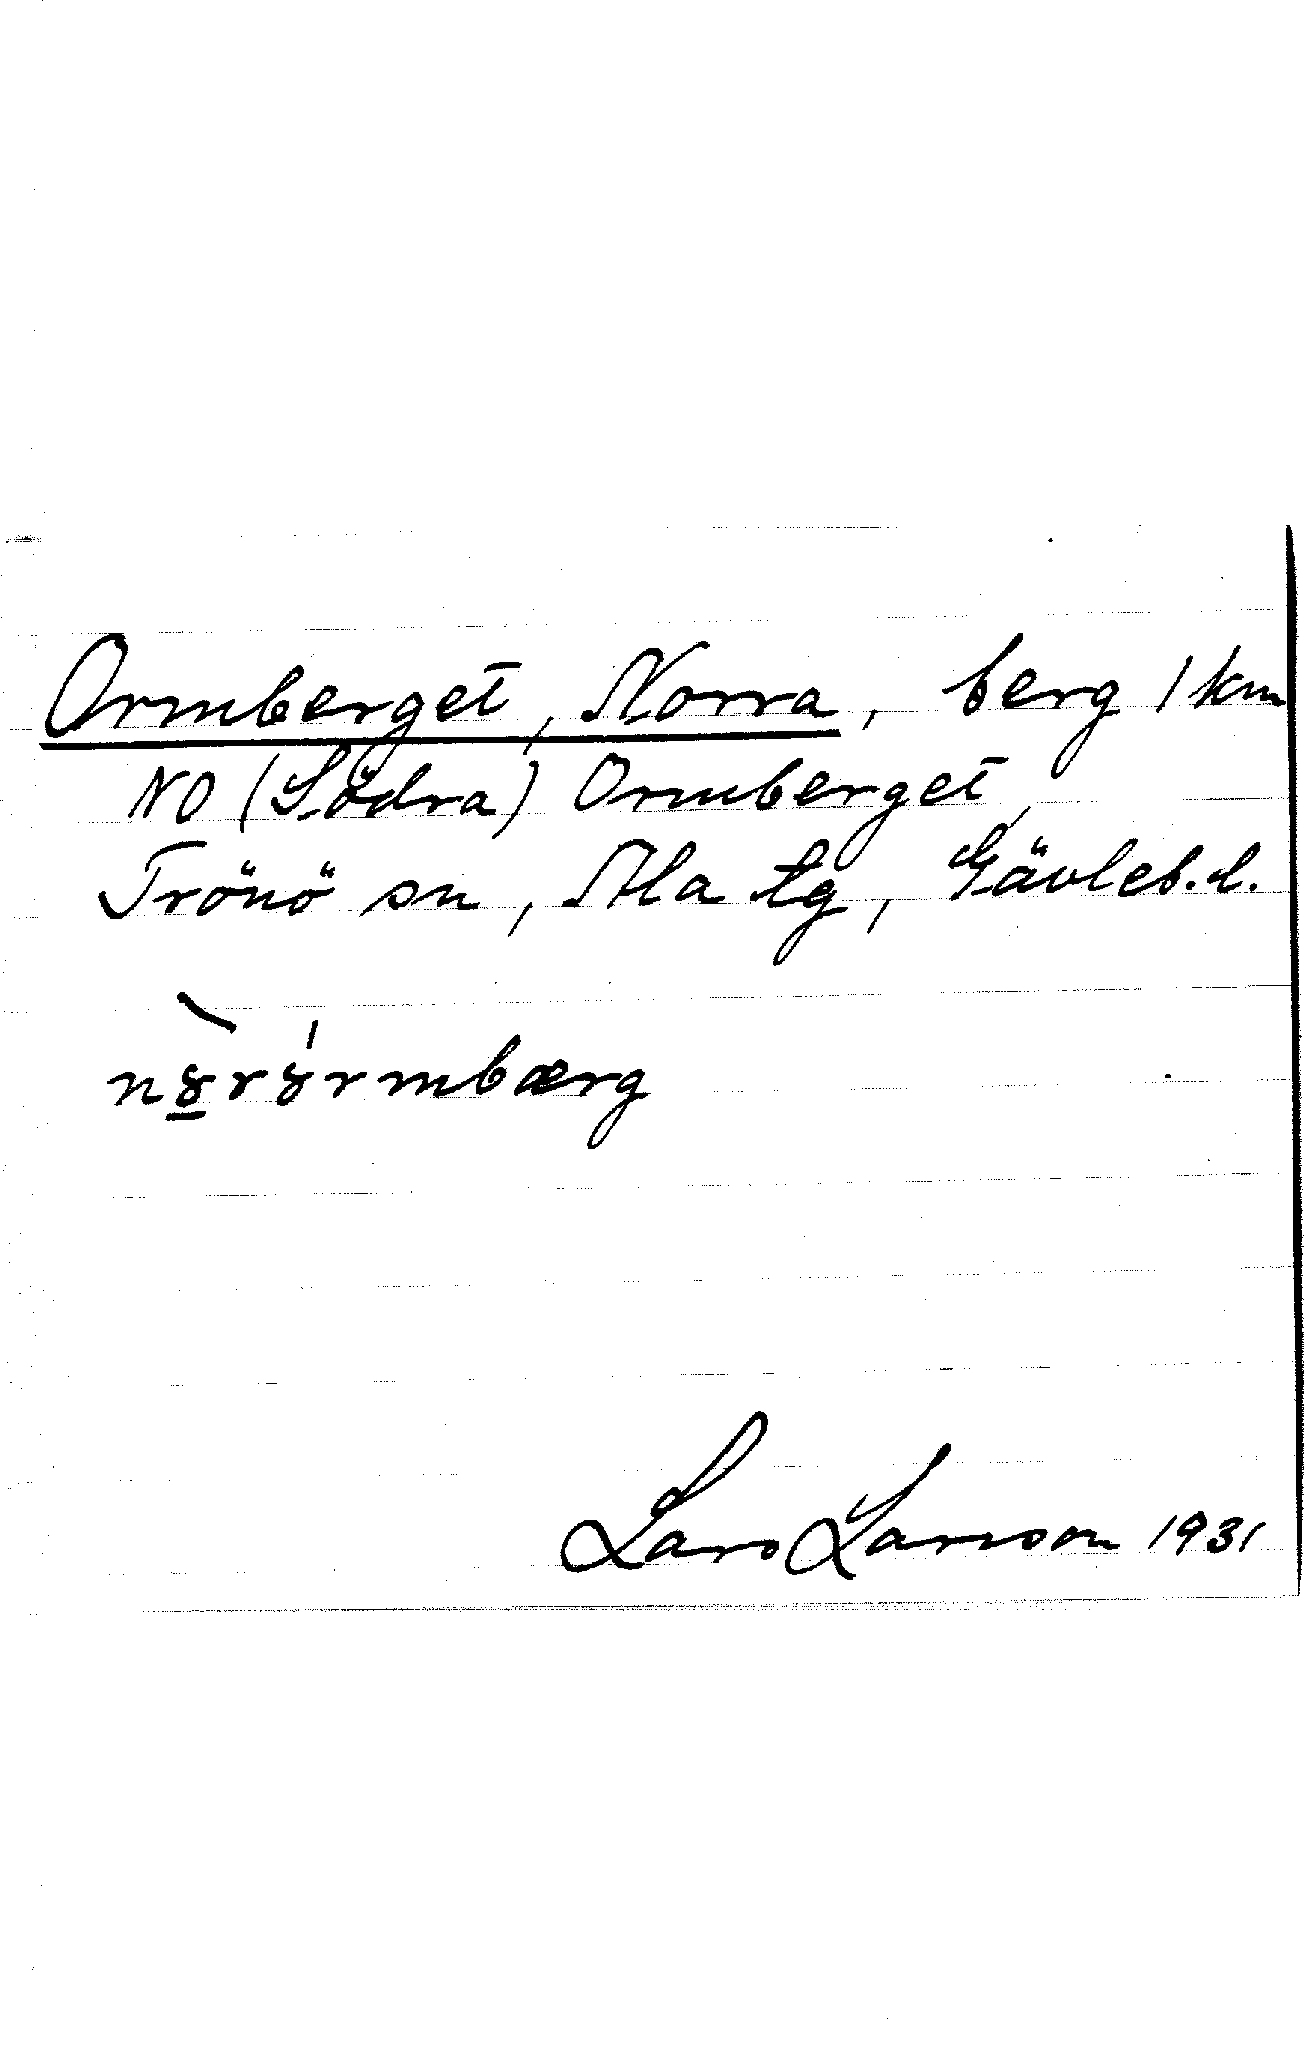 Ormberget, Norra, berg 1 km
NO (Södra) Ormberget,
Trönö sn, Ala tg, Gävleb. l.
nȣ̱̀rȣ́rmbærg
Lars Larsson 1931